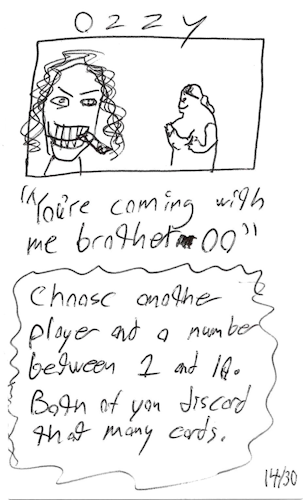 OZZY
"You're coming with
me brother OO"
Choose another
player and a number
between 1 and 10.
Both of you discard
that many cards.
14/30